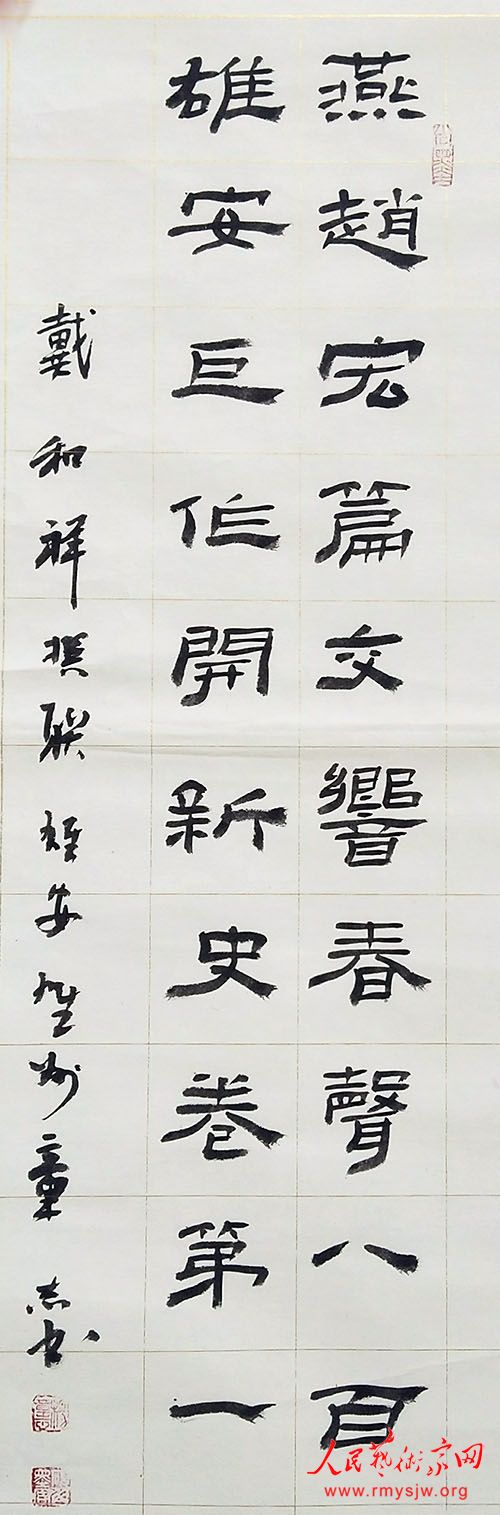 燕趙宏篇交響春聲八百
雄安巨作開新史卷第一
戴和祥撰联 雄安 章 志书
人民藝術家网
www.rmysjw.org